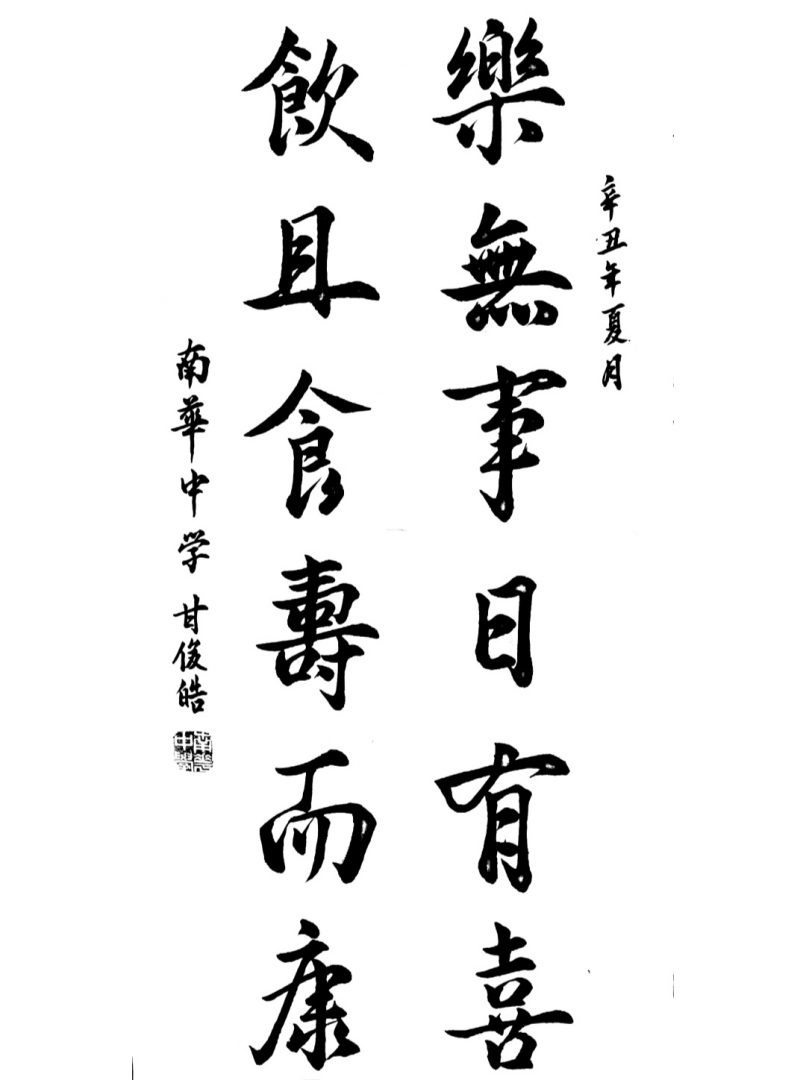 辛丑年夏月
樂無事日有喜
飲且食壽而康
南華中学 甘俊皓
南華中學